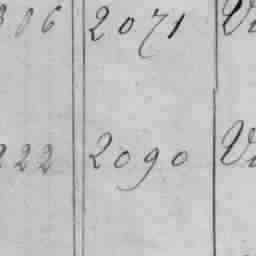 306 2071 Vi
222 2090 Vi